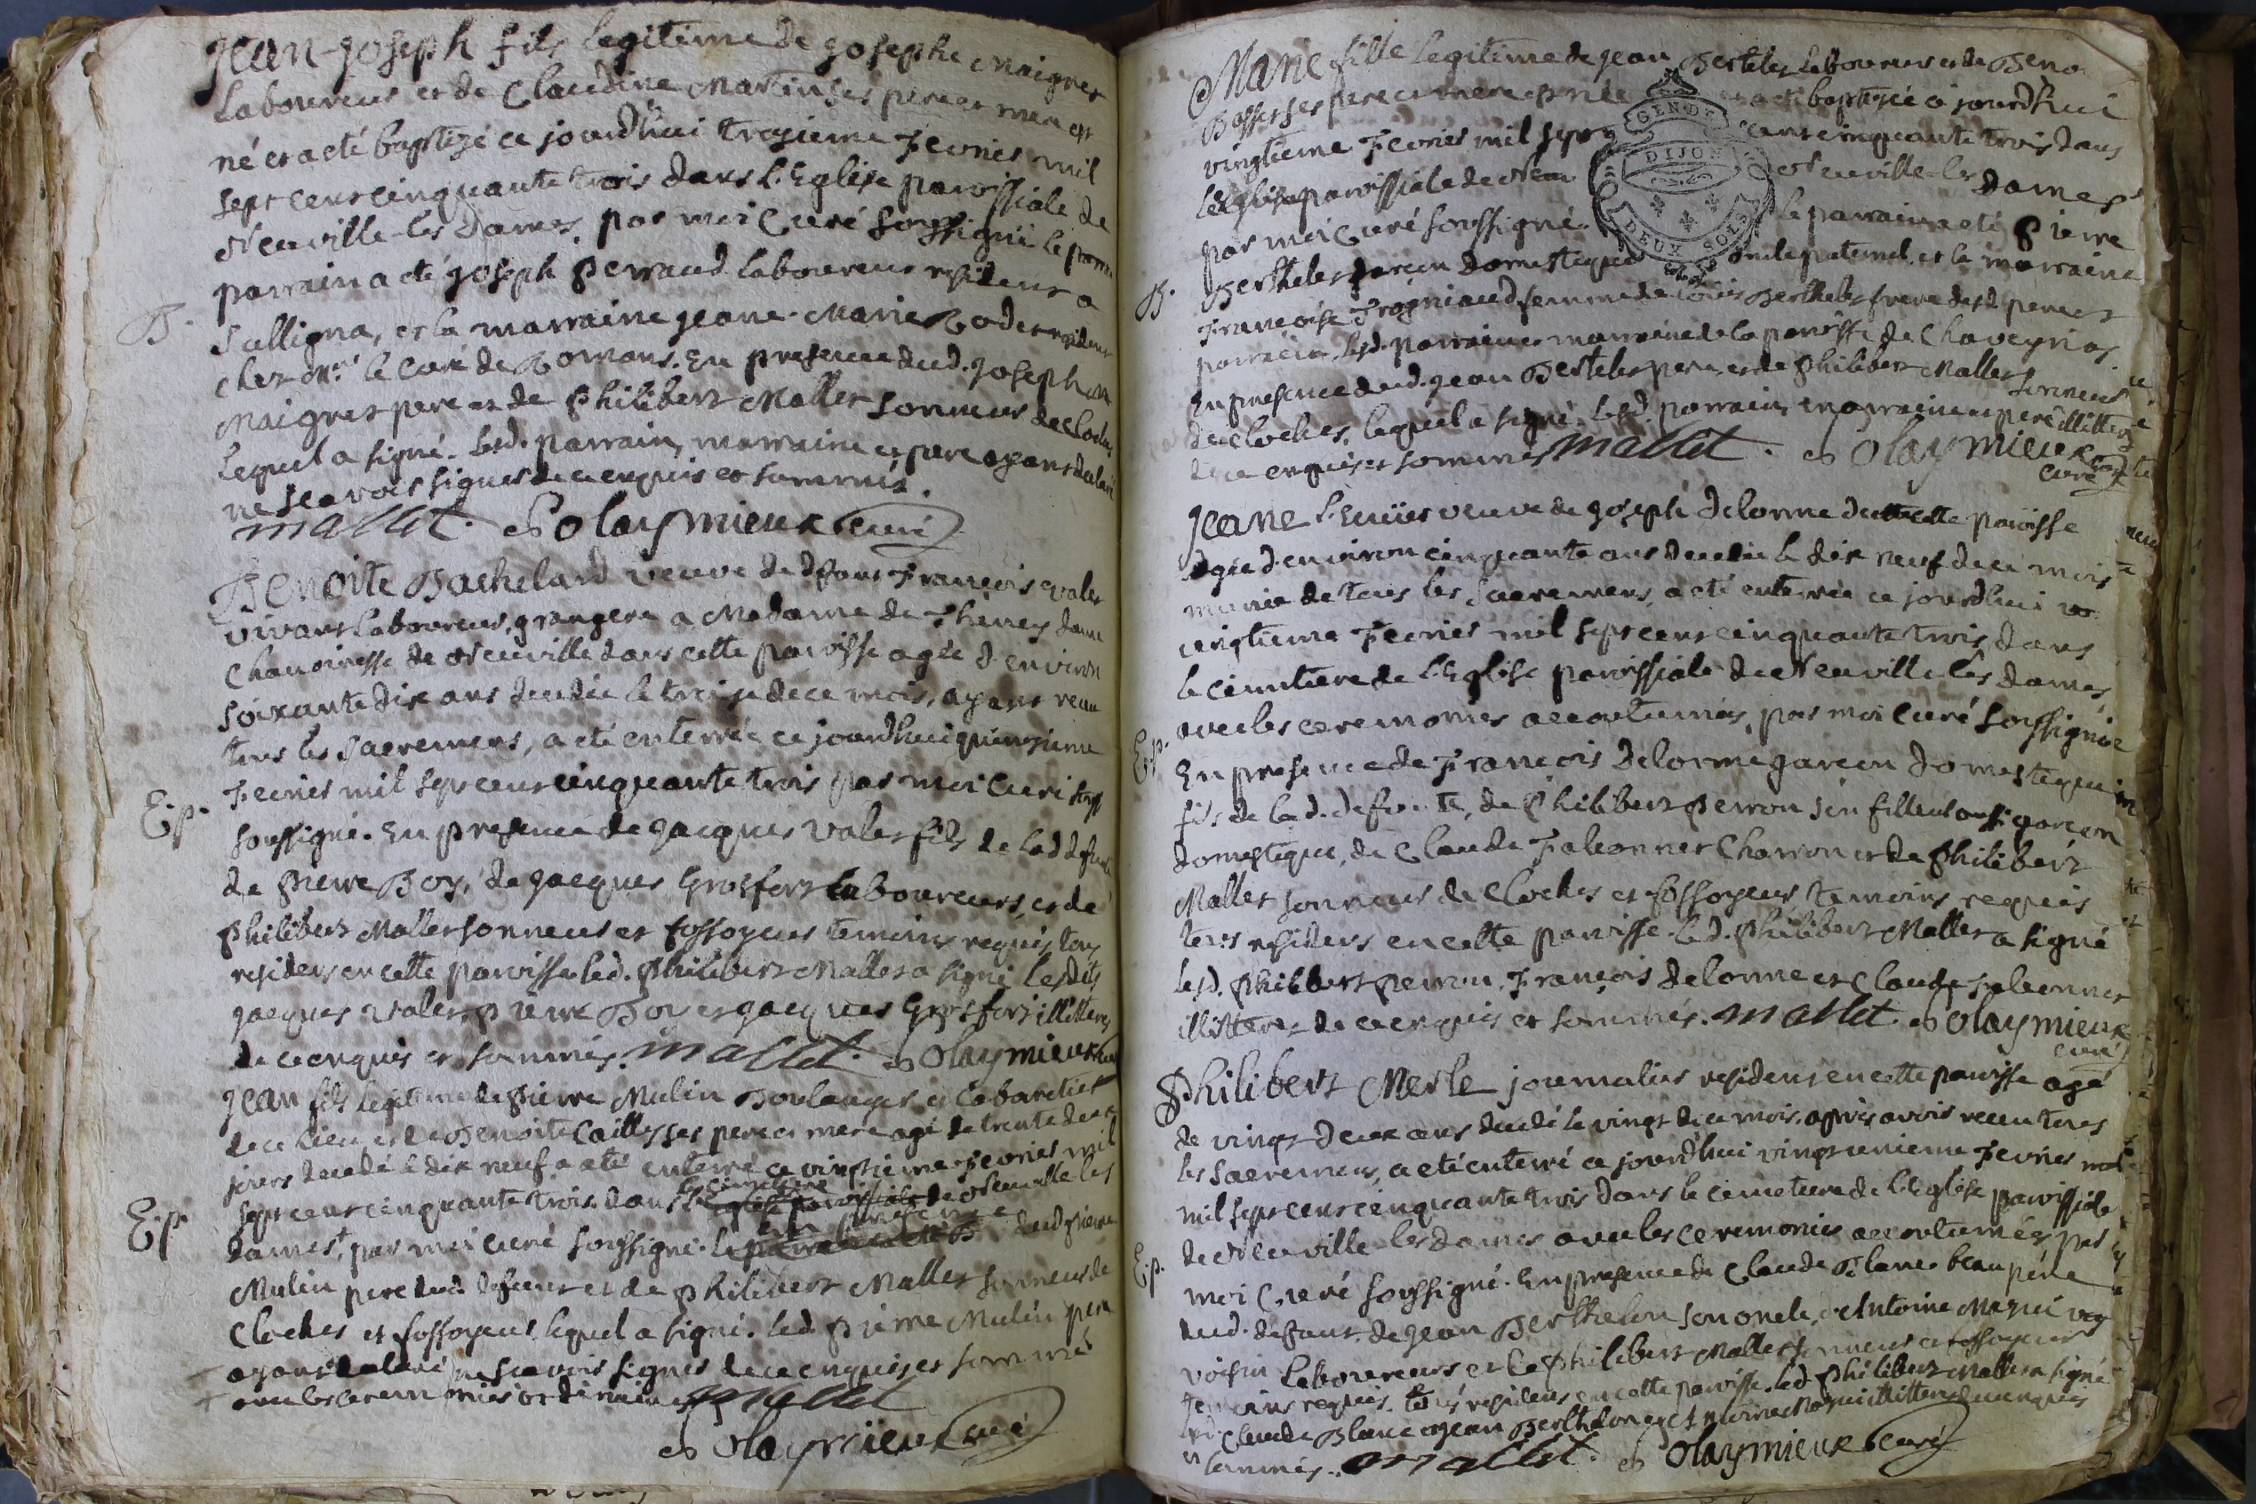 Jean-Joseph fils legitime de Josephe Maigret
Laboureur et de Claudine Martin ses pere et mere est
né et a eté baptizé ce jourd'huí troisieme Fevrier mil
sept cent cinquante trois dans L'Eglise paroissiale de
Neuville-les Dames, par moi Curé soussigné le parr
parrain a eté Joseph Perraud Laboureur resident a
B.
Sulligna, et la marraine Jeane-Marie Bodet resident
chez Mr. le Curé de Romans. En presence dud. Joseph M
Maigret pere et de Philibert Mallet sonneur de Cloches
Lequel a signé. Lesd. parrain, marraine et pere ayant declaré
ne sçavoir signer de ce enquis et sommés.
Mallet. Polaymieux curé
Benoite Bachelard veuve de defunt François Valet
vivant Laboureur, grangere a Madame de dame
Chanoinesse de Neuville dans cette paroisse agée d'environ
soixante dix ans decedée le treize de ce mois, ayant recu
tous les Sacremens, a eté enterrée ce jourd'hui quinzieme
E.p.
Fevrier mil sept cent cinquante trois par moi Curé souss
soussigné. En presence de Jacques Valet fils de lad. defunte
de Pierre Boy, de Jacques Grosfort Laboureurs, et de
Philibert Mallet sonneur et fossoyeur temoins requis tous
residens en cette paroisse led. Philibert Mallet a signé lesdits
Jacques Valet, Pierre Boy et Jacques Grosfort illitterés
de ce enquis et sommés. Mallet. Polaymieux curé
Jean fils legitime de Pierre Mulin Boulanger et Cabaretier
de ce Lieu et de Benoite Caillet ses pere et mere agé de trente deux
jours decedé le dix neuf a eté enterré ce vingtieme Fevrier mil
le cimetiere
E.p.
sept cent cinquante trois dans l'Eglise paroissiale de Neuville les
en presence
dames, par moi curé soussigné. le parrain a eté dud. Pierre
Mulin pere dud. defunt et de Philibert Mallet sonneur de
Cloches et fossoyeur, lequel a signé. Led. Pierre Mulin pere
ayant declaré ne sçavoir signer de ce enquis et sommé
avec les ceremonies ordinaires Mallet
Polaymieux curé
Marie fille legitime de Jean Bertelet Laboureur et de Beno
Bosset ses pere et mere est née et a eté baptizée ce jourd'hui
GEN DE
vingtieme Fevrier mil sept cent cinquante trois dans
DIJON
L'Eglise paroissiale de Neu Neuville-les Dames
DEUX SOLS
par moi Curé soussigné. le parrain a eté Pierre
B.
Berthelet garcon domestique oncle paternel, et la marraine
Françoise Frogniaud femme de Louis Berthelet frere desd. pere et
parrain. lesd. parrain et marraine de la paroisse de Chaveyriat.
En presence dud. Jean Bertelet pere, et de Philibert Mallet sonneur
de cloches, lequel a signé. Lesd. parrain, marraine et pere illitterés
de ce enquis et sommés Mallet. Polaymieux
curé
Jeane veuve de Joseph Delorme de cette paroisse
agée d'environ cinquante ans decedée le dix neuf de ce mois
munie de tous les Sacremens, a eté enterrée ce jourd'hui
vingtieme Fevrier mil sept cent cinquante trois dans
le cimetiere de L'Eglise paroissiale de Neuville les dames,
avec les ceremonies accoutumées, par moi curé soussigné
E.p.
En presence de François Delorme garcon domestique
fils de lad. defunte, de Philibert Perron son filleul aussi garcon
domestique, de Claude Falconnet Charron et de Philibert
Mallet sonneur de Cloches et fossoyeur temoins requis
tous residens en cette paroisse. Led. Philibert Mallet a signé
Lesd. Philibert Perron, François Delorme et Claude Falconnet
illitterés de ce enquis et sommés. Mallet. Polaymieux
curé
Philibert Merle journalier resident en cette paroisse agé
de vingt deux ans decedé le vingt de ce mois, après avoir recu tous
les Sacremens, a eté enterré ce jourd'hui vingt unieme Fevrier mil
mil sept cent cinquante trois dans le cimetiere de L'Eglise paroissiale
de Neuville les dames avec les ceremonies accoutumées, par
E.p.
moi Curé soussigné. En presence de Claude Blanc beau pére
dud. defunt de Jean Berthelon son oncle, d'Antoine Moguí
voisin Laboureurs et de Philibert Mallet sonneur et fossoyeur
temoins requis, tous residens en cette paroisse. Led. Philibert Mallet a signé
Led. Claude Blanc et Jean Berthelon et Antoine Mogui illitterés de ce enquis
et sommés. Mallet. Polaymieux curé